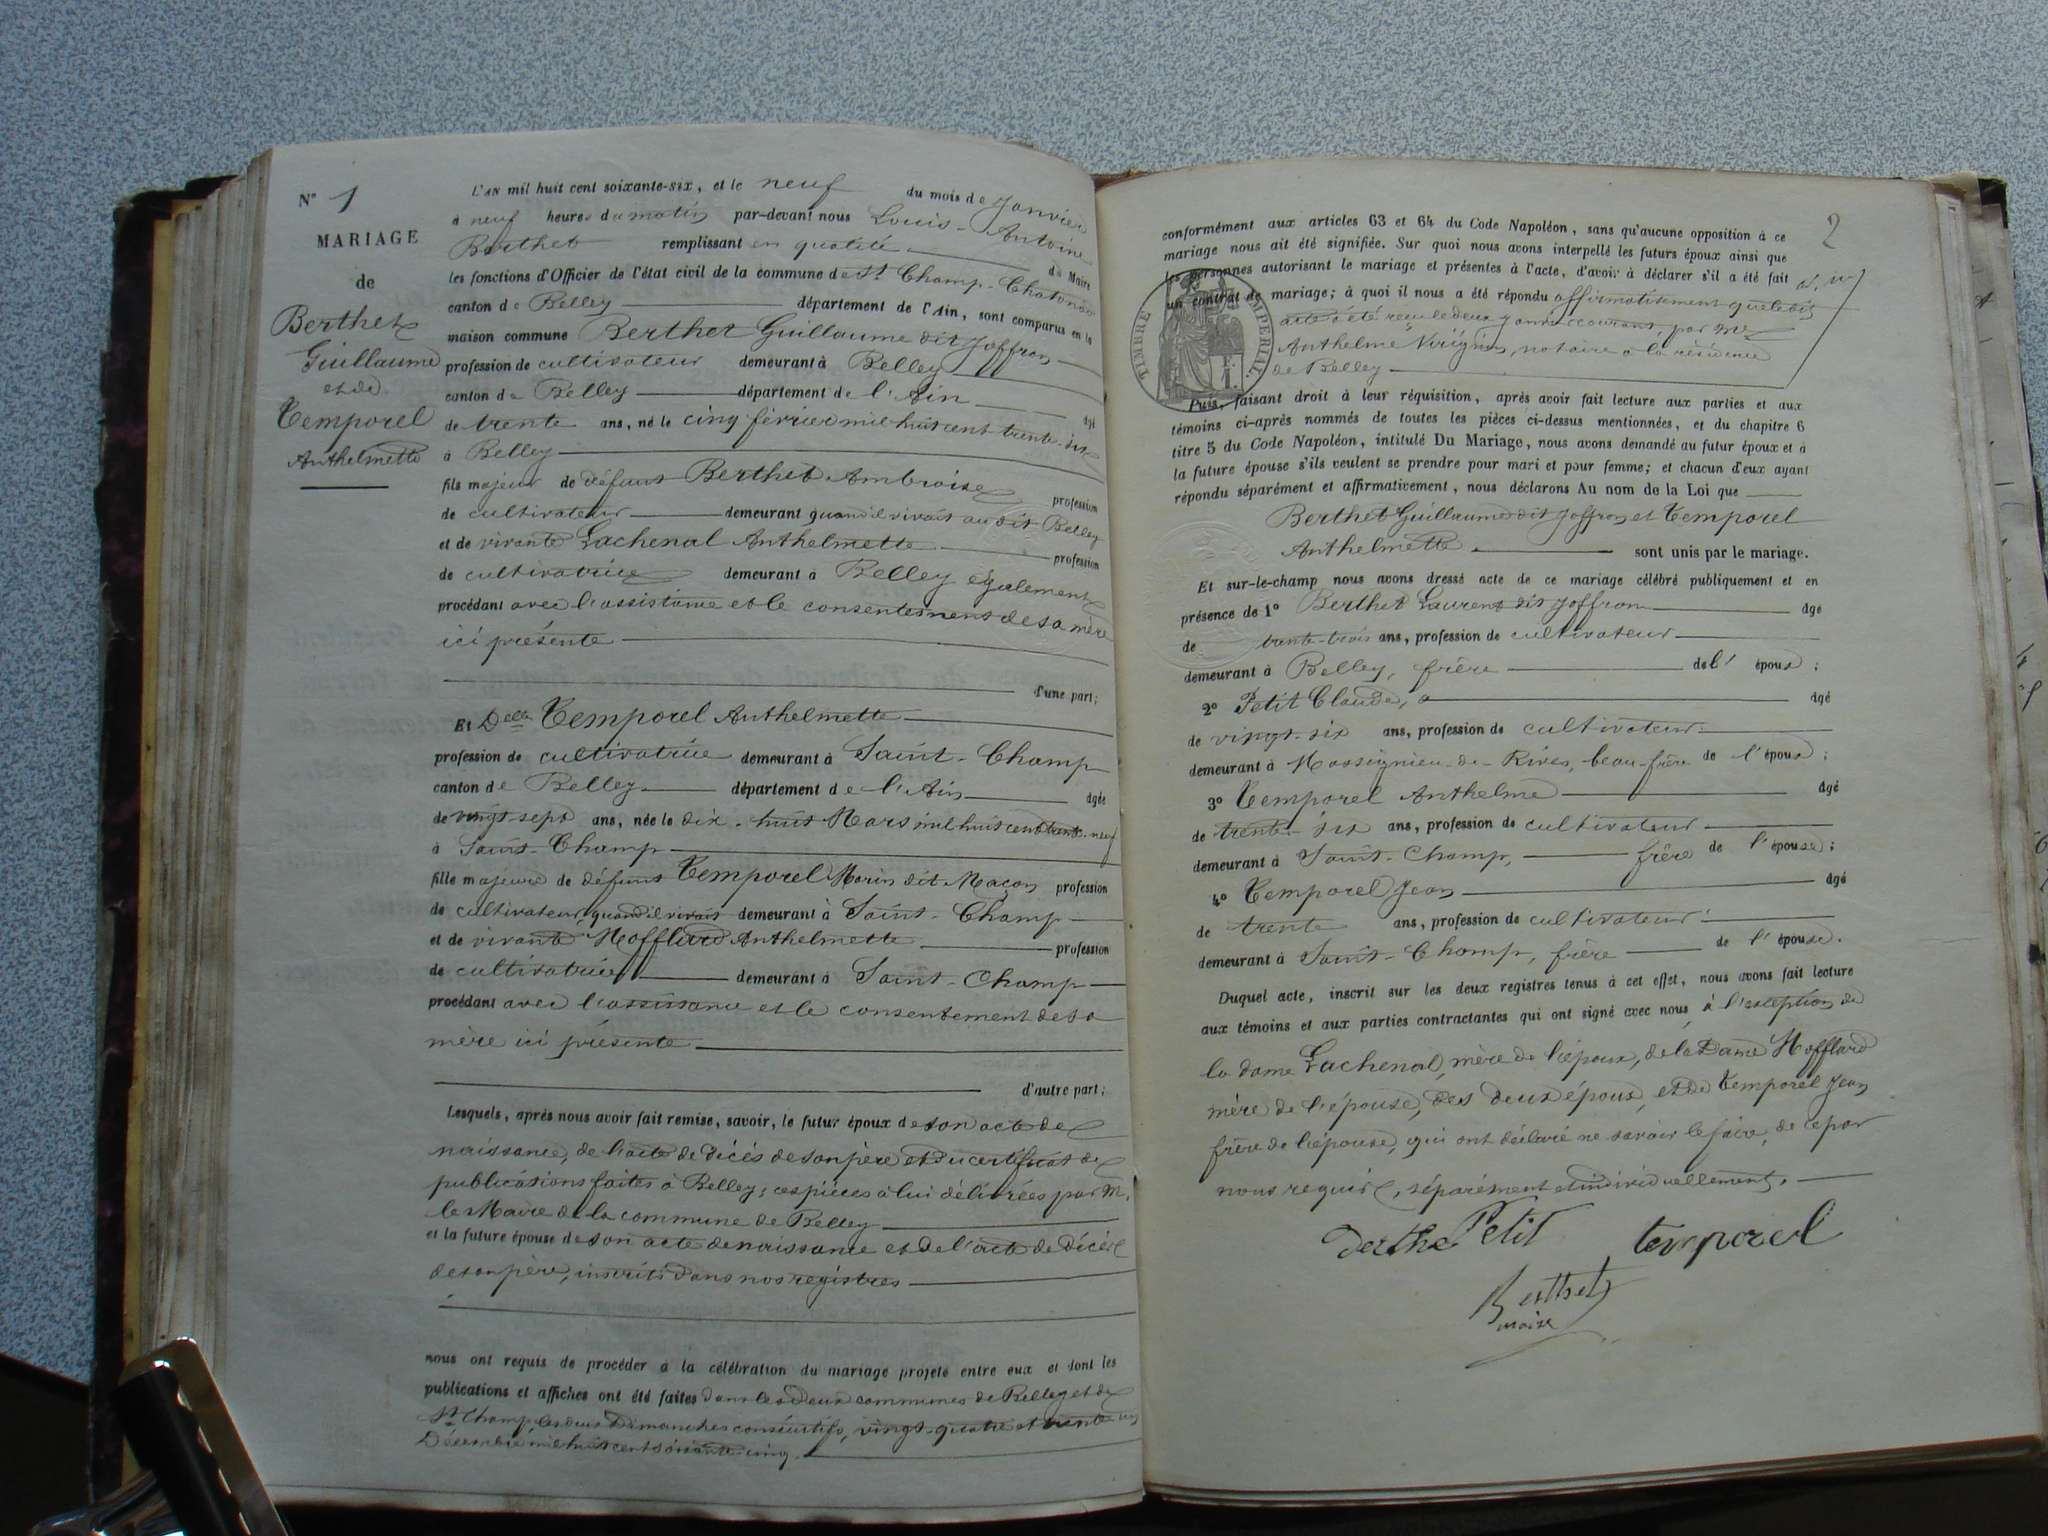 N° 1
MARIAGE
de
Berthet
Guillaume
et de
Temporel
Anthelmette
L'AN mil huit cent soixante-six, et le neuf du mois de Janvier
à neuf heures du matin par-devant nous Louis-Antoine
Berthet remplissant en qualité de Maire
les fonctions d'Officier de l'état civil de la commune de St Champ-Chatonod
canton de Belley département de l'Ain, sont comparus en la
maison commune Berthet Guillaume dit Joffron
profession de cultivateur demeurant à Belley
canton de Belley département de l'Ain âgé
de trente ans, né le cinq février mil huit cent trente-six
à Belley
fils majeur de défunt Berthet Ambroise profession
de cultivateur demeurant quand il vivait audit Belley
et de vivante Lachenal Anthelmette profession
de cultivatrice demeurant à Belley également
procédant avec l'assistance et le consentement de sa mère
ici présente
d'une part;
Et Delle Temporel Anthelmette
profession de cultivatrice demeurant à Saint-Champ
canton de Belley département de l'Ain âgée
de vingt-sept ans, née le dix-huit Mars mil huit cent trente-neuf
à Saint-Champ
fille majeure de défunt Temporel Marin dit Maçon profession
de cultivateur quand il vivait demeurant à Saint-Champ
et de vivante Hofflard Anthelmette profession
de cultivatrice demeurant à Saint-Champ
procédant avec l'assistance et le consentement de sa
mère ici présente
d'autre part;
Lesquels, après nous avoir fait remise, savoir, le futur époux de son acte de
naissance, de l'acte de décès de son père et du certificat de
publications faites à Belley; ces pièces à lui délivrées par M.
le Maire de la commune de Belley
et la future épouse de son acte de naissance et de l'acte de décès
de son père, inscrits dans nos registres
nous ont requis de procéder à la célébration du mariage projeté entre eux et dont les
publications et affiches ont été faites dans les deux communes de Belley et de
St Champ, les deux Dimanches consécutifs, vingt-quatre et trente un
Décembre mil huit cent soixante-cinq.
2
conformément aux articles 63 et 64 du Code Napoléon, sans qu'aucune opposition à ce
mariage nous ait été signifiée. Sur quoi nous avons interpellé les futurs époux ainsi que
les personnes autorisant le mariage et présentes à l'acte, d'avoir à déclarer s'il a été fait
un contrat de mariage; à quoi il nous a été répondu affirmativement que ledit
acte a été reçu le deux janvier courant, par Me
Anthelme notaire à la résidence
de Belley
TIMBRE IMPERIAL
Puis, faisant droit à leur réquisition, après avoir fait lecture aux parties et aux
témoins ci-après nommés de toutes les pièces ci-dessus mentionnées, et du chapitre 6
titre 5 du Code Napoléon, intitulé Du Mariage, nous avons demandé au futur époux et à
la future épouse s'ils veulent se prendre pour mari et pour femme; et chacun d'eux ayant
répondu séparément et affirmativement, nous déclarons Au nom de la Loi que
Berthet Guillaume dit Joffron et Temporel
Anthelmette sont unis par le mariage.
Et sur-le-champ nous avons dressé acte de ce mariage célébré publiquement et en
présence de 1° Berthet Laurent dit Joffron âgé
de trente-trois ans, profession de cultivateur
demeurant à Belley, frère de l'époux;
2° Petit Claude, âgé
de vingt-six ans, profession de cultivateur
demeurant à Massignieu-de-Rives, beau-frère de l'époux;
3° Temporel Anthelme âgé
de trente-six ans, profession de cultivateur
demeurant à Saint-Champ, frère de l'épouse;
4° Temporel Jean âgé
de trente ans, profession de cultivateur
demeurant à Saint-Champ, frère de l'épouse.
Duquel acte, inscrit sur les deux registres tenus à cet effet, nous avons fait lecture
aux témoins et aux parties contractantes qui ont signé avec nous à l'exception de
la dame Lachenal, mère de l'époux, de la Dame Hofflard
mère de l'épouse, des deux époux, et de Temporel Jean
frère de l'épouse, qui ont déclaré ne savoir le faire, de ce par
nous requis, séparément et individuellement.
Berthe Petit temporel
Berthet
maire